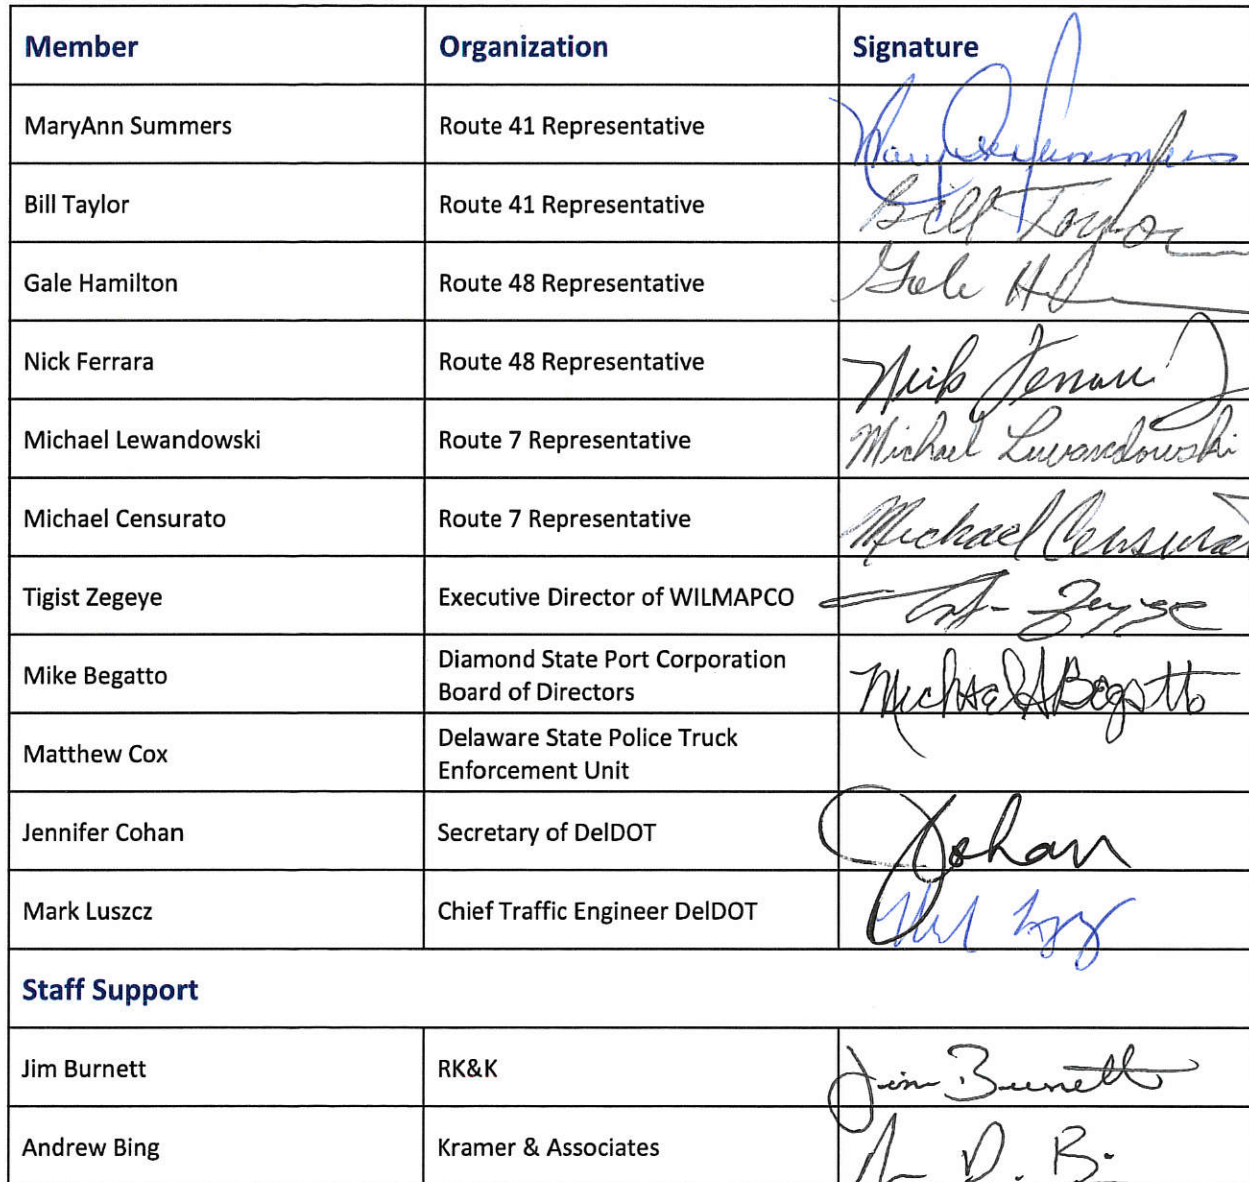 Member Organization Signature
MaryAnn Summers Route 41 Representative Mary Ann Summers
Bill Taylor Route 41 Representative Bill Taylor
Gale Hamilton Route 48 Representative Gale
Nick Ferrara Route 48 Representative Nick Ferrara
Michael Lewandowski Route 7 Representative Michael Lewandowski
Michael Censurato Route 7 Representative Michael Censurato
Tigist Zegeye Executive Director of WILMAPCO Zegeye
Mike Begatto Diamond State Port Corporation
Board of Directors Michael A Begatto
Matthew Cox Delaware State Police Truck
Enforcement Unit
Jennifer Cohan Secretary of DelDOT JCohan
Mark Luszcz Chief Traffic Engineer DelDOT
Staff Support
Jim Burnett RK&K Jim Burnett
Andrew Bing Kramer & Associates